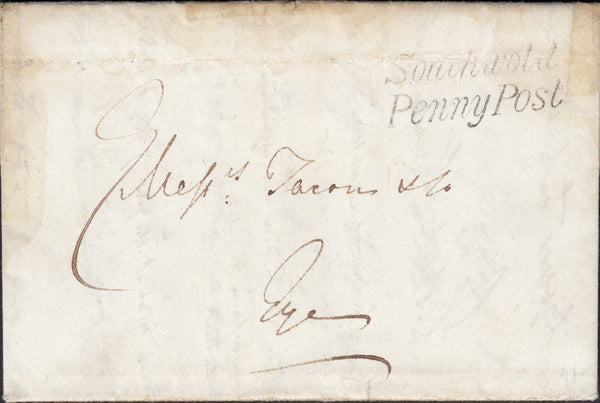 Southwold
Penny Post
Mess.rs Tacon & Co
Eye